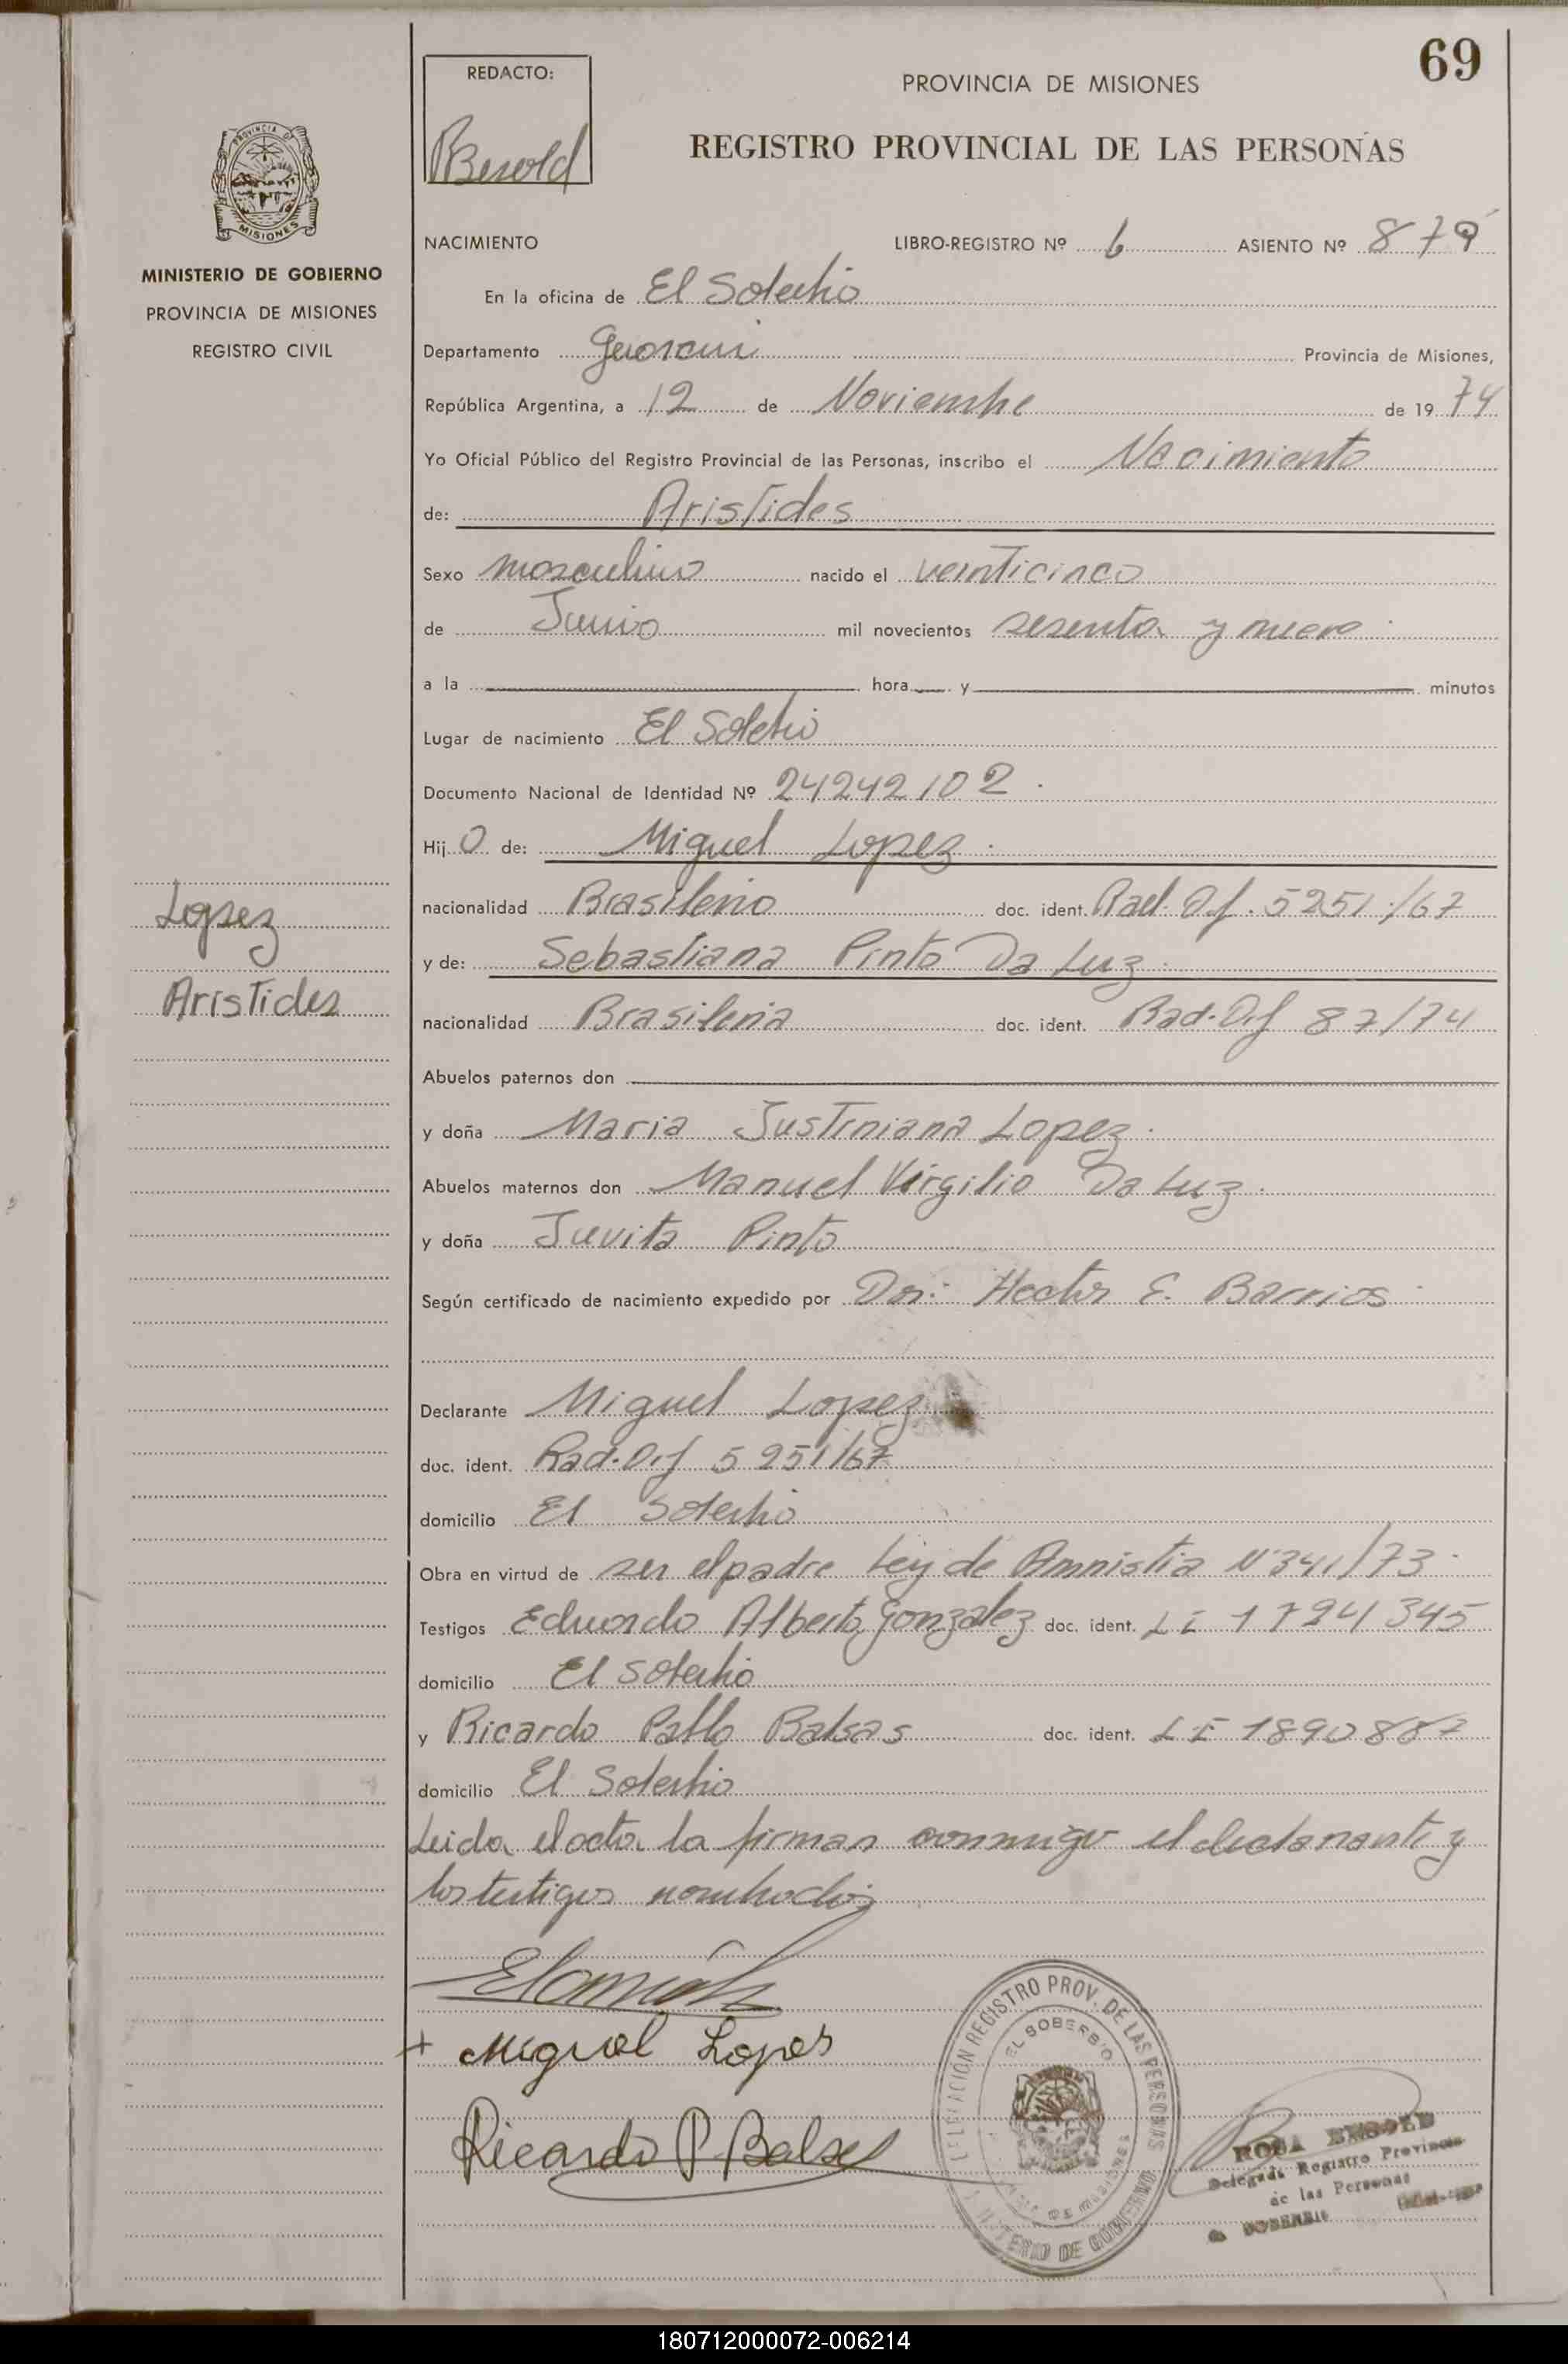 69
REDACTO:
PROVINCIA DE MISIONES
RBesold
REGISTRO PROVINCIAL DE LAS PERSONAS
PROVINCIA DE
MISIONES
MINISTERIO DE GOBIERNO
PROVINCIA DE MISIONES
REGISTRO CIVIL
NACIMIENTO LIBRO-REGISTRO Nº 6 ASIENTO Nº 879
En la oficina de El Soberbio
Departamento Guarani Provincia de Misiones,
República Argentina, a 12 de Noviembre de 19 74
Yo Oficial Público del Registro Provincial de las Personas, inscribo el Nacimiento
de: Aristides
Sexo masculino nacido el veinticinco
de Junio mil novecientos sesenta y nueve
a la hora y minutos
Lugar de nacimiento El Soberbio
Documento Nacional de Identidad Nº 24242102
Hij o de: Miguel Lopez
nacionalidad Brasileño doc. ident. Rad. Df. 5251/67
Lopez
y de: Sebastiana Pinto Da Luz
Aristides
nacionalidad Brasileña doc. ident. Rad. Df 87/74
Abuelos paternos don
y doña Maria Justiniana Lopez
Abuelos maternos don Manuel Virgilio Da Luz
y doña Juvita Pinto
Según certificado de nacimiento expedido por Dr: Hector E. Barrios
Declarante Miguel Lopez
doc. ident. Rad. Df 5251/67
domicilio El Soberbio
Obra en virtud de ser el padre Ley de Amnistia Nº 341/73
Testigos Eduardo Alberto Gonzalez doc. ident. LE 1724345
domicilio El Soberbio
y Ricardo Pablo Balsas doc. ident. LE 1890887
domicilio El Soberbio
Leida el acta la firman conmigo el declarante y
los testigos nombrados
+ Miguel Lopes
Ricardo P Balsas
DELEGACIÓN REGISTRO PROV. DE LAS PERSONAS
EL SOBERBIO
MINISTERIO DE GOBIERNO
ROSA BESOLD
Delegada Registro Provincial
de las Personas
EL SOBERBIO
180712000072-006214